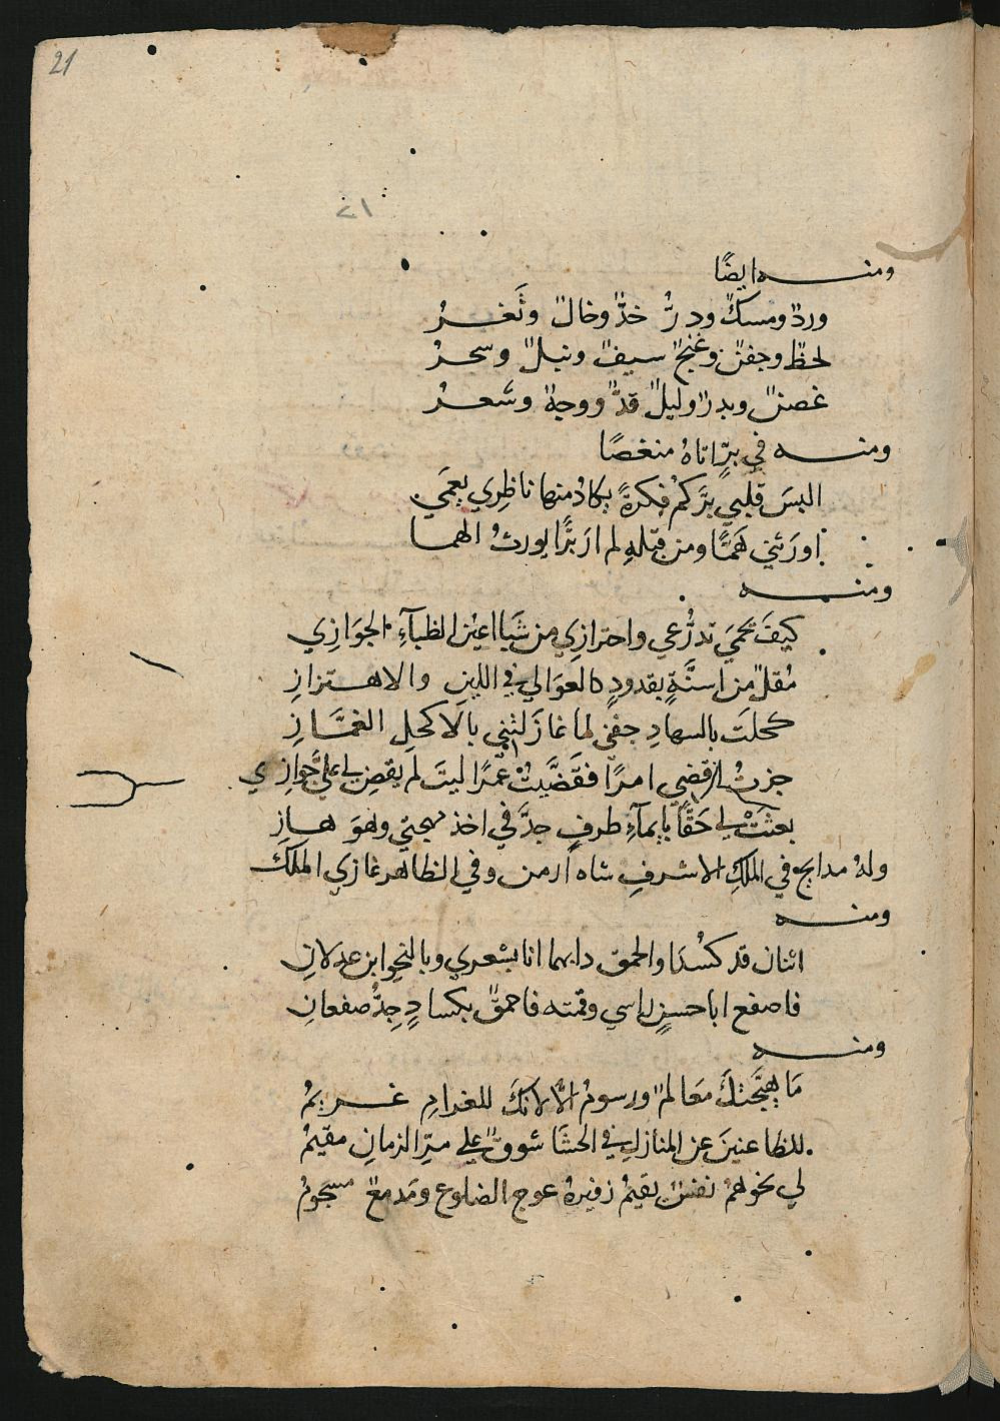 21
٢١
ومنه ايضًا
وردٌ ومسكٌ ودرٌّ خدٌّ وخالٌ وثَغرُ
لحظٌ وجفنٌ وغنجٌ سيفٌ ونبلٌ وسحرُ
غصنٌ وبدرٌ وليلٌ قدٌّ ووجهٌ وشَعرُ
ومنه في برٍّ اتاهُ منغصًا
البسَ قلبي برَّكمُ فكرةً يكادُ منها ناظِري يعمَي
اورَثني هَمًّا ومن قبلهِ لم ارَ برًّا يورثُ الهما
ومنه
كيفَ تحمَي تدرُّعي واحترازِي من شَبا اعيُن الظبآءِ الجوَازِي
مُقلٌ من اسنَّةٍ بقدودٍ كالعوَالي في اللينِ والاهتزازِ
كحلتَ بالسهادِ جفني لما غازَلتني بالَاكحلِ الغمَّازِ
جزتُ لاقضي امرًا فقَضَّيتُ عمرًا ليتَ لم يقضِ لي عليَّ جوازِي
بعثتَ لي حَقًّا بايمآءِ طرفٍ جدَّ في اخذ مهجتي وهوَ هازِ
ولهُ مدايح في الملكِ الاشرفِ شاه ارمن وفي الظاهر غازي الملك
ومنه
اثنان قد كسُدَا والحمق دابهما انا بشعري وبالنحو ابن عدلانِ
فاصفع ابا حسنٍ راسي وقمته فاحمقٌ بكسادٍ جِدُّ صفعانِ
ومنه
مَا هيَّجَتكَ مَعَالمٌ ورسومُ الَّا لانكَ للغرامِ غريمُ
للظاعنينَ عن المنازلِ في الحشَا شووقٌ علي مرِّ الزمانِ مقيمُ
لي نحوهمُ نفسٌ يقيمُ زفيرهُ عوج الضلوع ومَدمعٌ مسجومُ